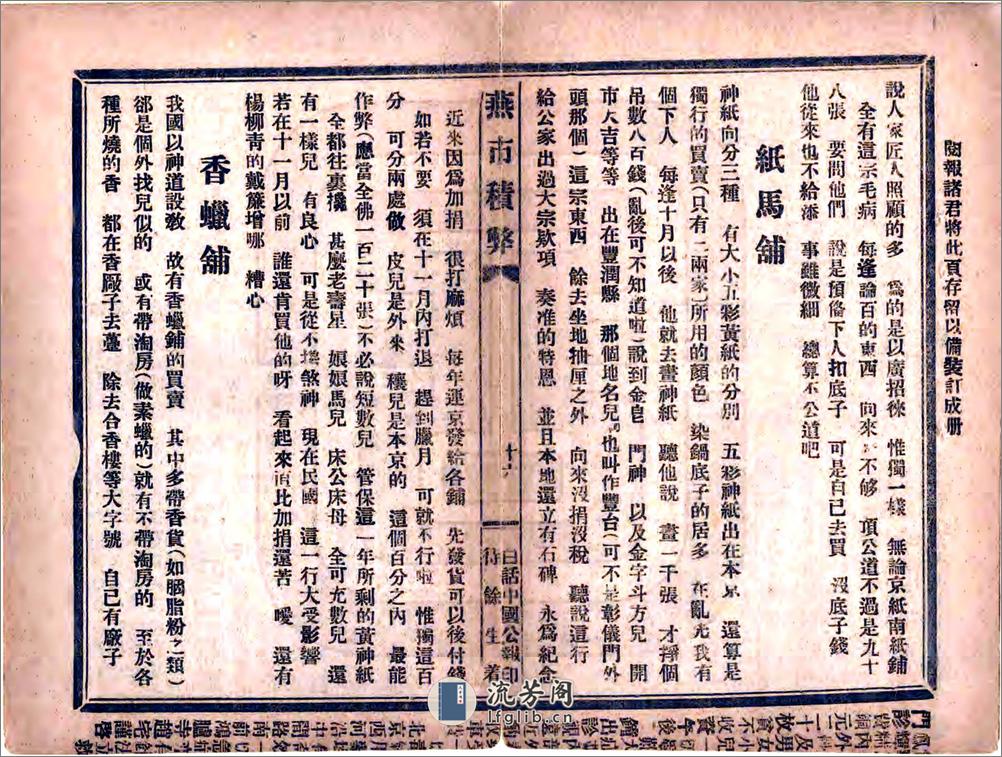 閱報諸君將此頁存留以備裝訂成册
說人家匠人照顧的多 爲的是以廣招徠 惟獨一樣 無論京紙南紙鋪
全有這宗毛病 每逢論百的東西 向來不够 頂公道不過是九十
八張 要問他們 說是預備下人扣底子 可是自已去買 沒底子錢
他從來也不給添 事雖微細 總算不公道吧
紙馬舖
神紙向分三種 有大小五彩黃紙的分別 五彩神紙出在本京 還算是
獨行的買賣(只有一兩家)所用的顏色 染鍋底子的居多 在亂先我有
個下人 每逢十月以後 他就去畫神紙 聽他說 畫一千張 才掙個
吊數八百錢(亂後可不知道啦)說到金皂 門神 以及金字斗方兒 開
市大吉等等 出在豐潤縣 那個地名兒 也叫作豐台(可不是彰儀門外
頭那個)這宗東西 餘去坐地抽厘之外 向來沒捐沒稅 聽說這行
給公家出過大宗欵項 奏准的特恩 並且本地還立有石碑 永爲紀念
燕市積弊
十六
白話中國公報印
待餘生着
近來因爲加捐 很打麻煩 每年運京發給各鋪 先發貨可以後付錢
如若不要 須在十一月內打退 趕到臘月 可就不行啦 惟獨這百
分 可分兩處做 皮兒是外來 穰兒是本京的 這個百分之內 最能
作弊(應當全佛一百二十張)不必說短數兒 管保這一年所剩的黃神紙
全都往裏攙 甚麽老壽星 娘娘馬兒 床公床母 全可充數兒 還
有一樣兒 有良心 可是從不攙煞神 現在民國 這一行大受影響
若在十一月以前 誰還肯買他的呀 看起來 比加捐還苦 噯 還有
楊柳青的戴簾增哪 糟心
香蠟舖
我國以神道設敎 故有香蠟鋪的買賣 其中多帶香貨(如胭脂粉之類)
卻是個外找兒似的 或有帶淘房(做素蠟的)就有不帶淘房的 至於各
種所燒的香 都在香廠子去躉 除去合香樓等大字號 自己有廠子
流芳阁
lfglib.cn